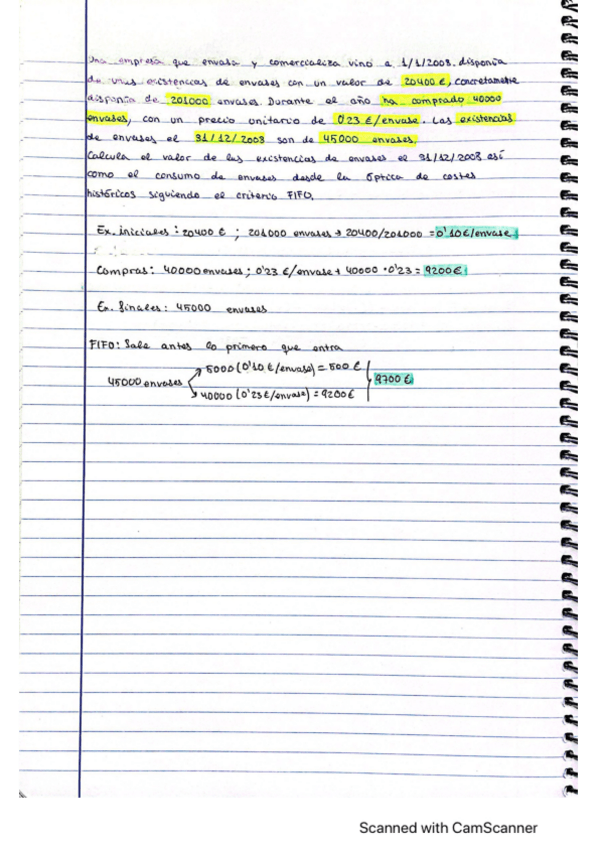 Una empresa que envasa y comercializa vino a 1/1/2008. disponía
de unas existencias de envases con un valor de 20400 €, concretamente
disponía de 201000 envases. Durante el año ha comprado 40000
envases, con un precio unitario de 0'23 €/envase. Las existencias
de envases el 31/12/2008 son de 45000 envases.
Calcula el valor de las existencias de envases el 31/12/2008 así
como el consumo de envases desde la óptica de costes
históricos siguiendo el criterio FIFO.
Ex. iniciales: 20400 € ; 201000 envases → 20400/201000 = 0'10€/envase.
Compras: 40000 envases; 0'23 €/envase → 40000 · 0'23 = 9200€
Ex. finales: 45000 envases
FIFO: Sale antes lo primero que entra
5000 (0'10 €/envase) = 500 €
45000 envases
9700 €
40000 (0'23€/envase) = 9200€
Scanned with CamScanner